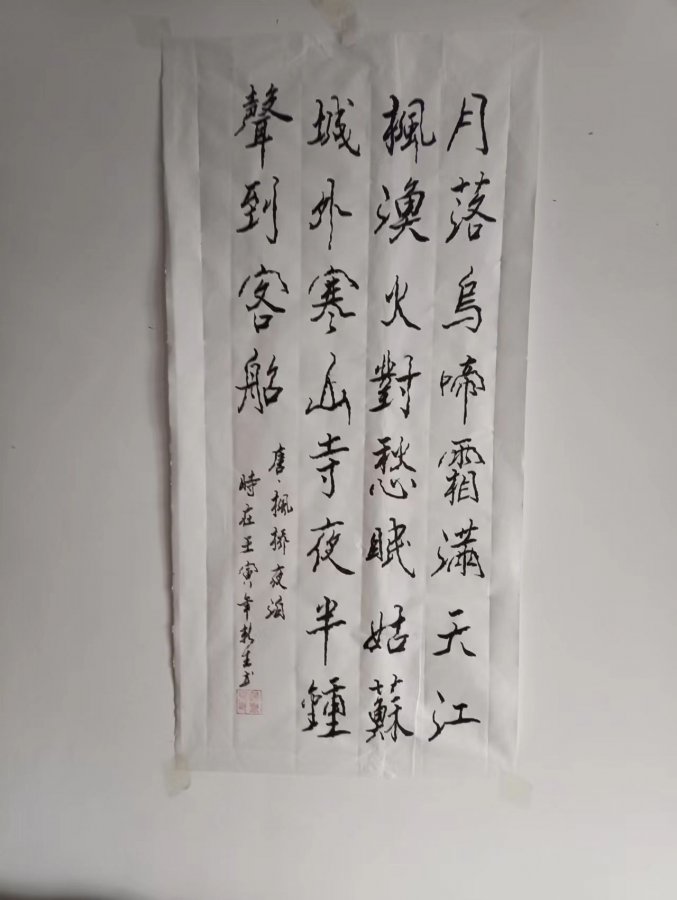 月落烏啼霜滿天江
楓漁火對愁眠姑蘇
城外寒山寺夜半鍾
聲到客船
唐、楓橋夜泊
時在壬寅年